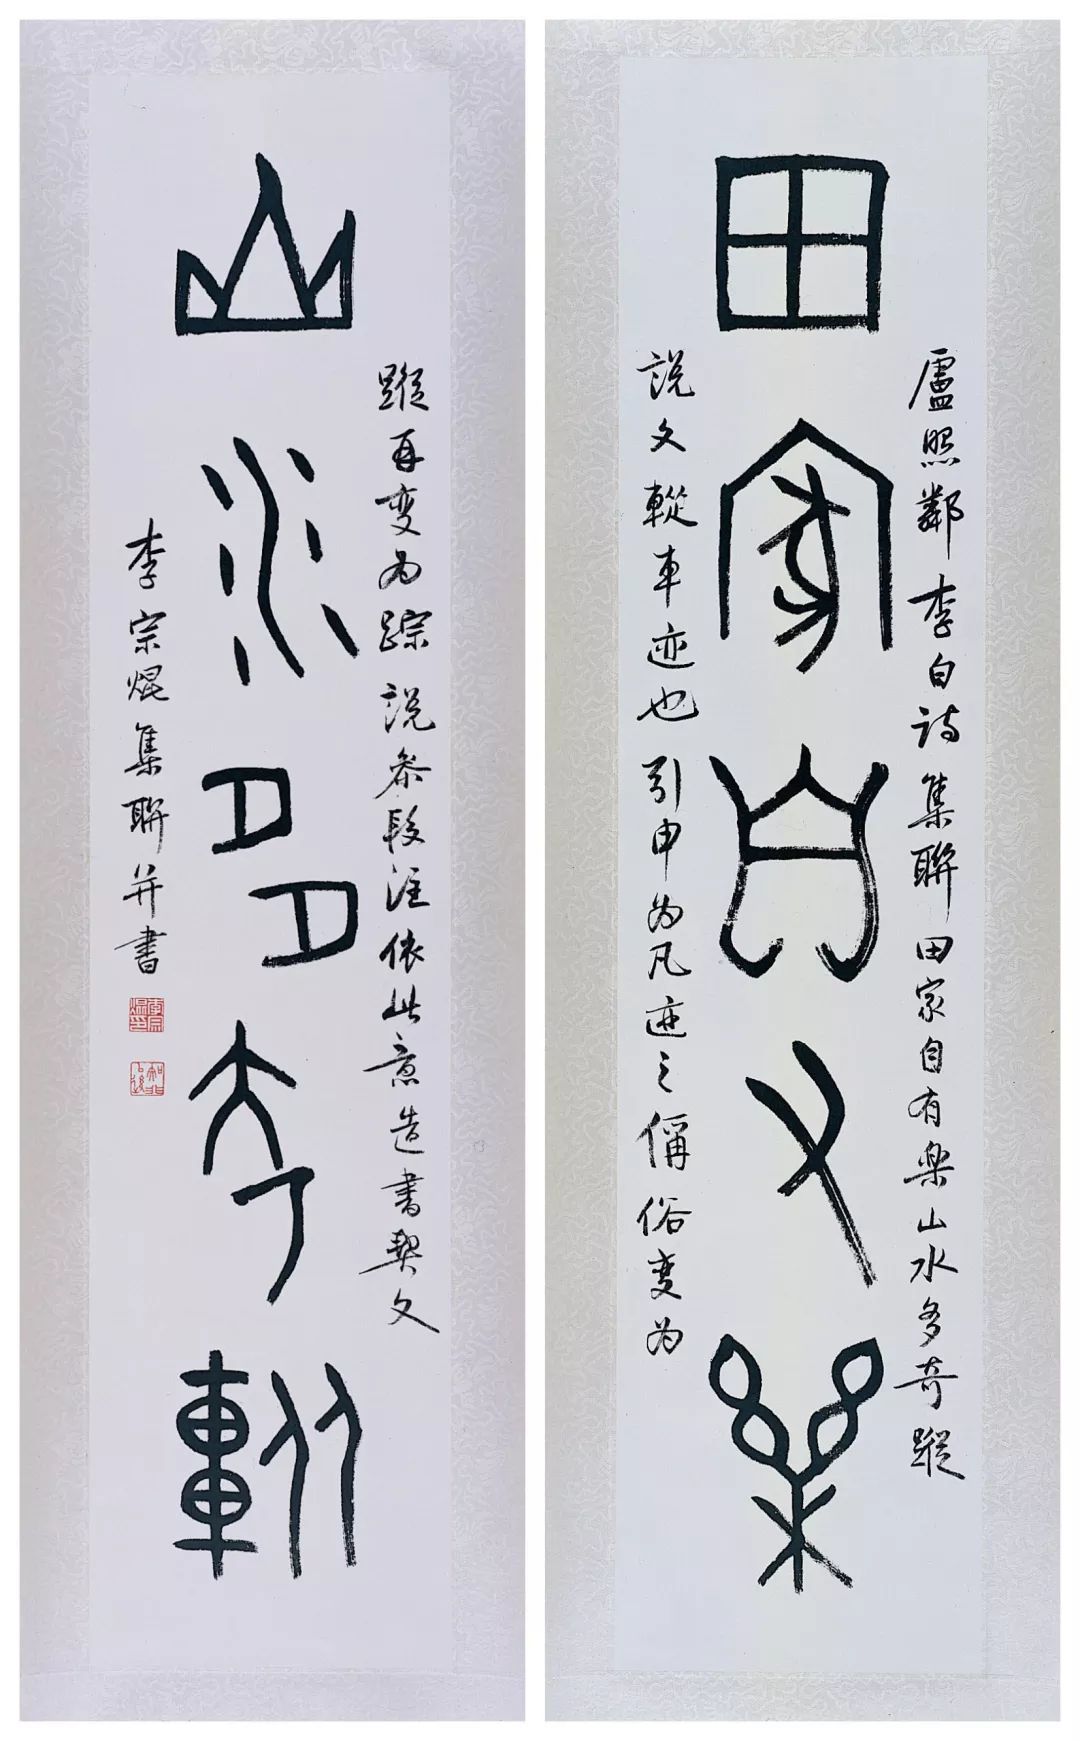 盧照鄰李白詩集聯田家自有楽山水多奇蹤
田家自有樂
說文䡮車迹也引申为凡迹之偁俗变为
蹤再变为踪說参段注依此意造書契文
山水多奇䡮
李宗焜集聯并書
李宗焜印